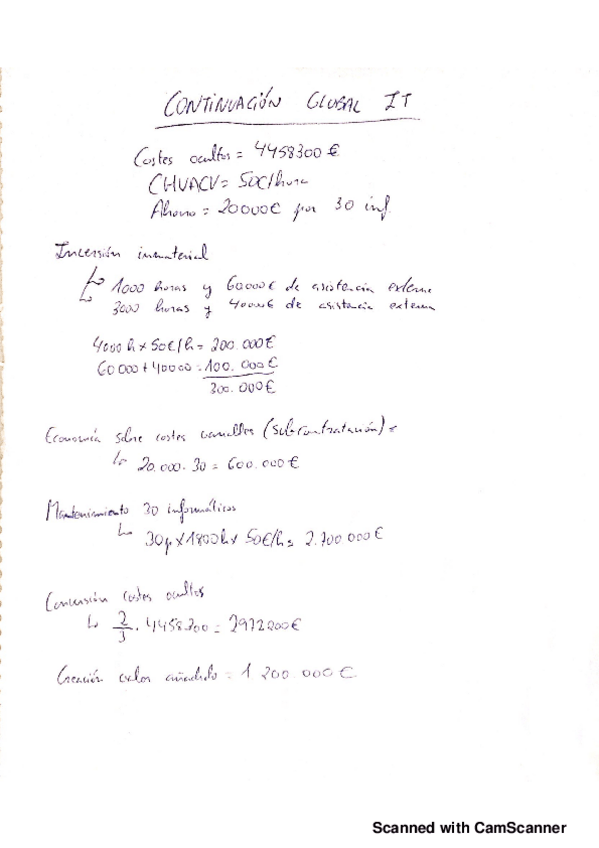 CONTINUACIÓN GLOBAL IT
Costes ocultos = 4458300 €
CHVACV = 50€/hora
Ahorro = 20000€ por 30 inf.
Inversión inmaterial
↳ 1000 horas y 60000€ de asistencia externa
↳ 3000 horas y 40000€ de asistencia externa
4000 h x 50€/h = 200 000€
60 000 + 40000 = 100. 000€
300. 000€
Economía sobre costes variables (subcontratación) =
↳ 20.000 · 30 = 600.000€
Mantenimiento 30 informáticos
↳ 30p x 1800h x 50€/h = 2.700 000€
Conversión costes ocultos
↳ 2/3 · 4458300 = 2972200€
Creación valor añadido = 1 200 000€
Scanned with CamScanner